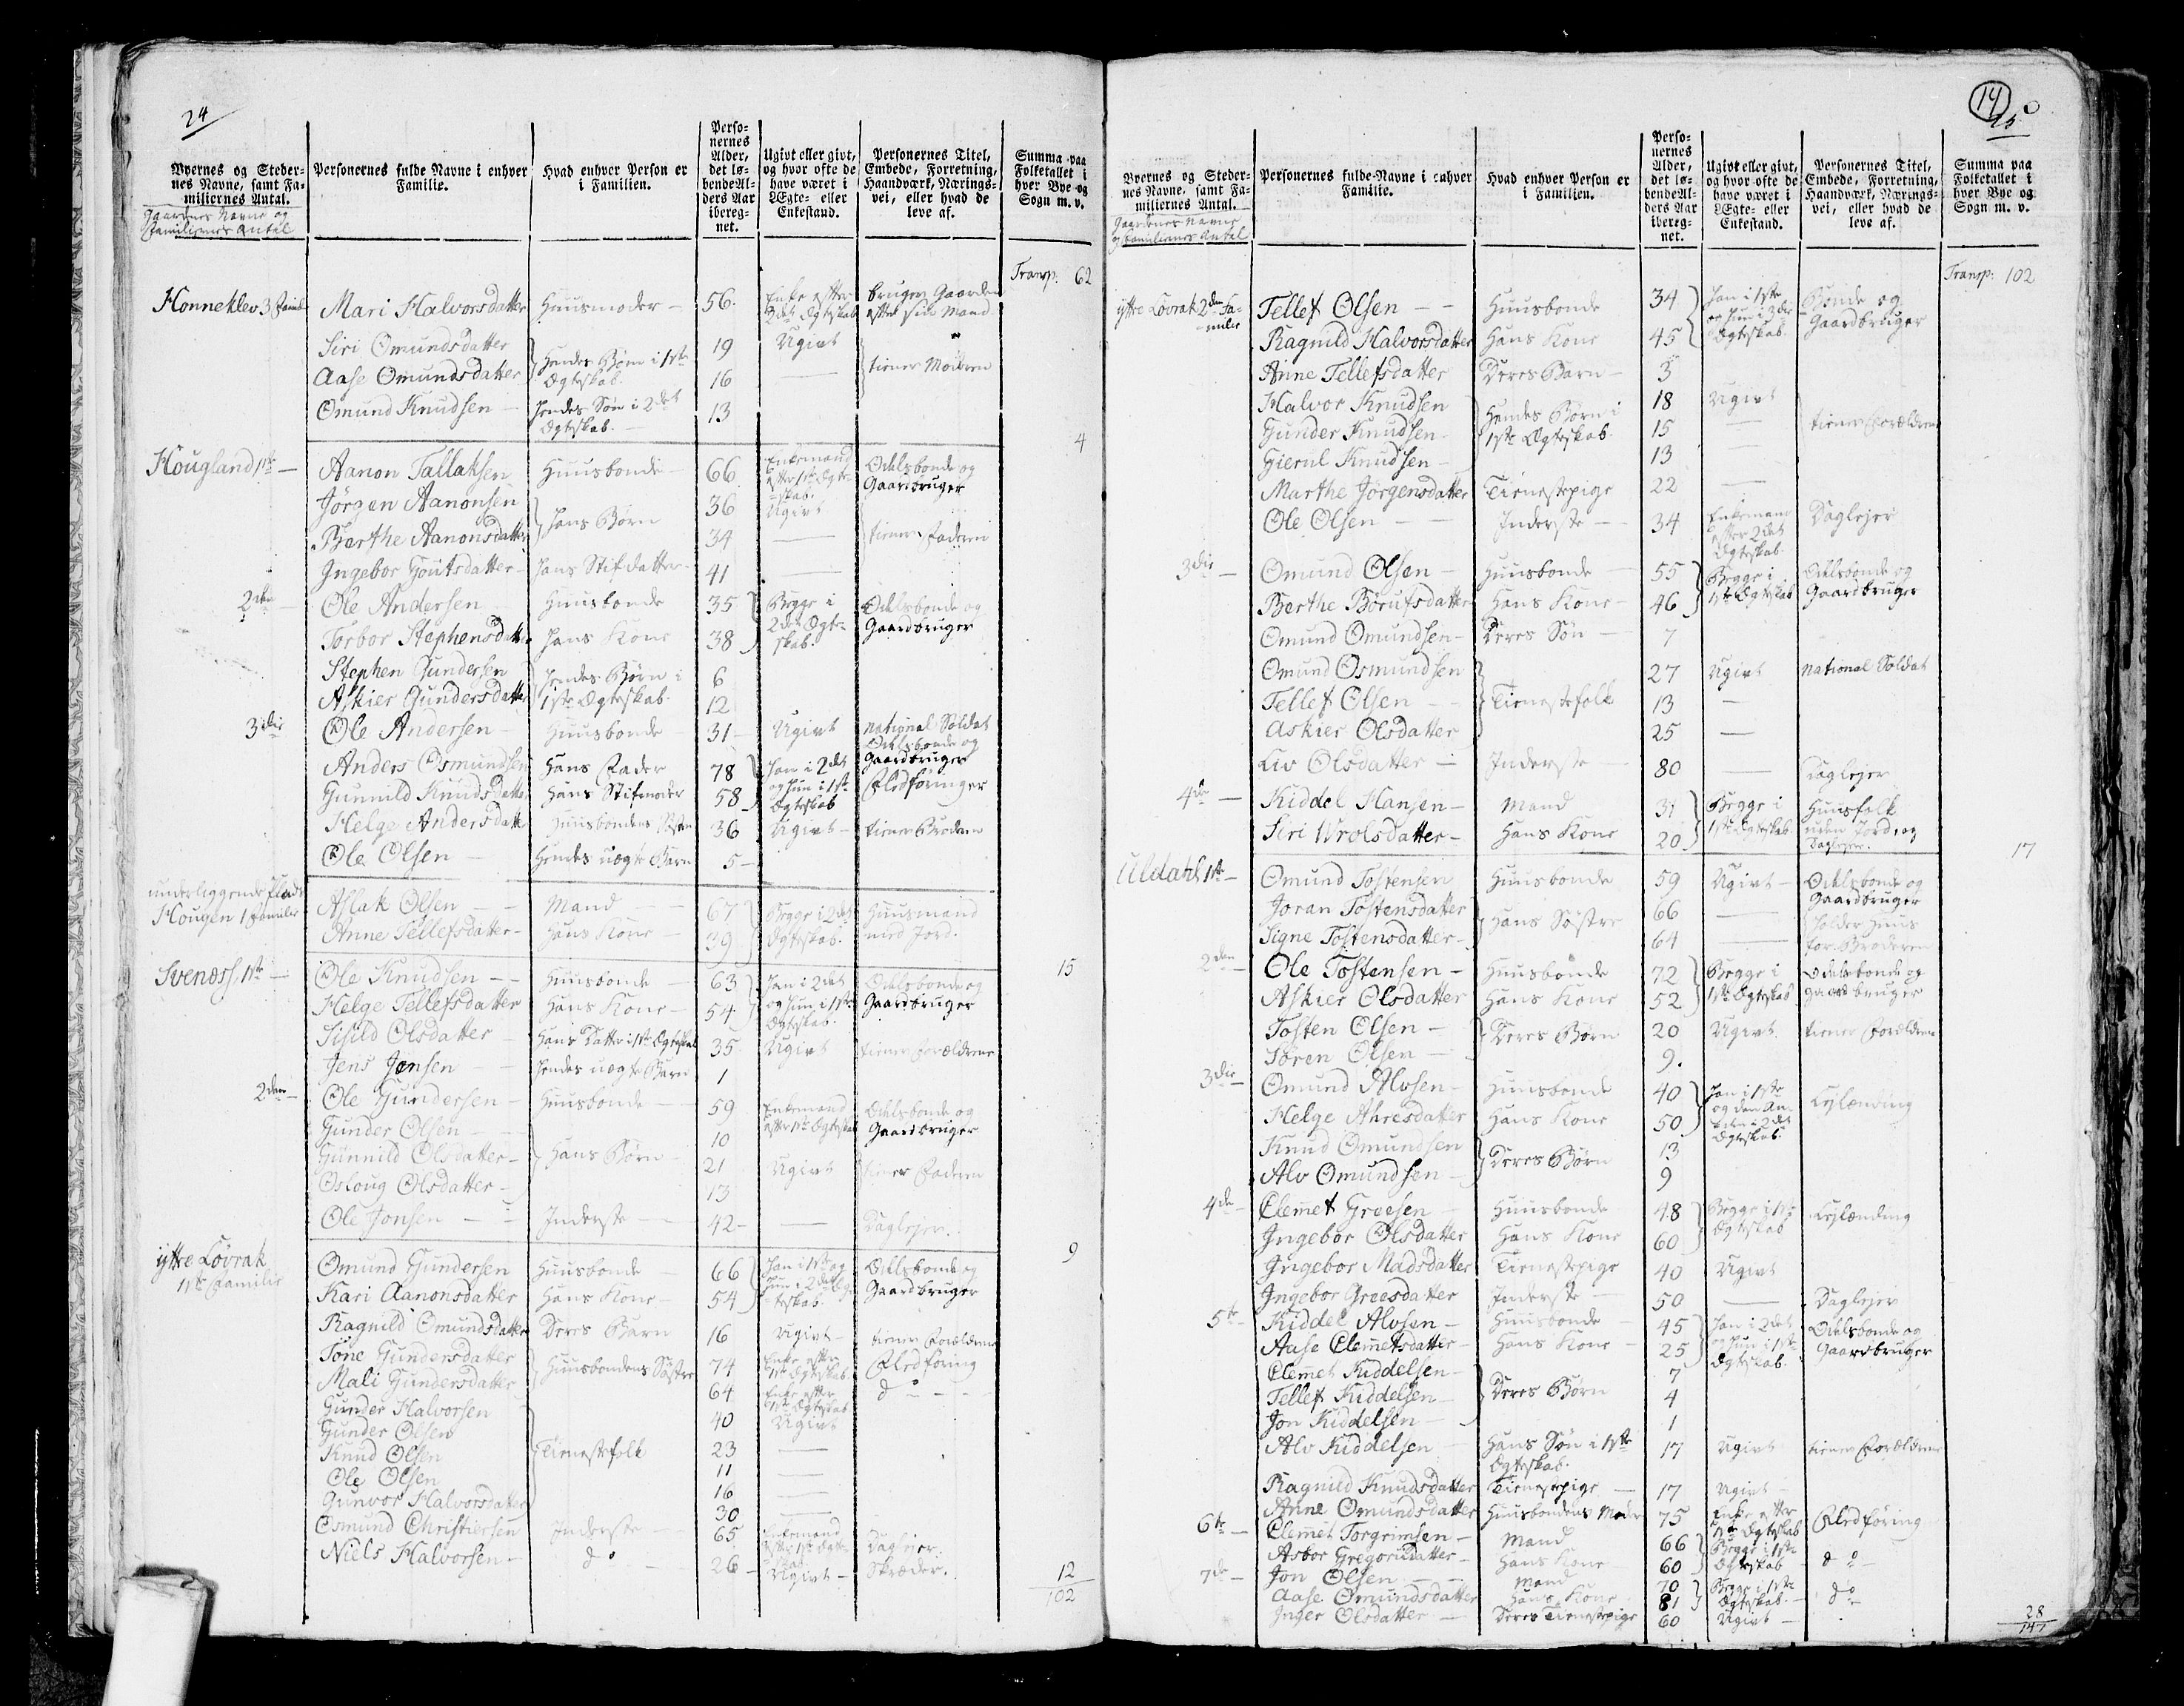 24
Byernes og Steder-
nes Navne, samt Fa-
miliernes Antal.
Gaardenes Navne og
Familiernes Antal
Personernes fulde Navne i enhver
Familie.
Hvad enhver Person er
i Familien.
Perso-
nernes
Alder,
det lø-
bende Al-
ders Aar
ibereg-
net.
Ugivt eller givt,
og hvor ofte de
have været i
Ægte- eller
Enkestand.
Personernes Titel,
Embede, Forretning,
Haandværk, Nærings-
vei, eller hvad de
leve af.
Summa paa
Folketallet i
hver Bye og
Sogn m. v.
Transp. 62
Honneklev 3 Famil Mari Halvorsdatter Huusmoder 56. Enke efter 2det Ægteskab bruger Gaarden efter sin Mand
Siri Omundsdatter 19 Ugivt
Aase Omundsdatter Hendes Børn i 1ste Ægteskab. 16 — tiener Moderen
Omund Knudsen — hendes Søn i 2det Ægteskab. 13
4
Hougland 1ste — Aanon Tallaksen Huusbonde 66 Enkemand efter 1ste Ægteskab. Odelsbonde og Gaardbruger
Jörgen Aanonsen 36 Ugivt
Berthe Aanonsdatter hans Børn 34 — tiener Faderen
Ingebor Goutsdatter hans Stifdatter 41 —
2den Ole Andersen Huusbonde 35 Begge i 2det Ægteskab. Odelsbonde og Gaardbruger
Torbor Stephensdatter hans Kone 38
Stephen Gundersen hendes Børn i 1ste Ægteskab. 6
Askier Gundersdatter 12
3die Ole Andersen Huusbonde 31 Ugivt National Soldat Odelsbonde og Gaardbruger
Anders Osmundsen Hans Fader 78 Han i 2det og hun i 1ste Ægteskab Flodføringer
Gunnild Knudsdatter Hans Stifmoder 58
Helge Andersdatter Huusbondens Søster 36 Ugivt tiener Broderen
Ole Olsen — Hendes uægte Barn 5
underliggende Plads
Hougen 1 Familie Aslak Olsen — Mand 67 Begge i 2det Ægteskab. Huusmand med Jord.
Anne Tellefsdatter Hans Kone 39
15
Svenæss 1ste — Ole Knudsen — Huusbonde 63 Han i 2det og hun i 1ste Ægteskab. Odelsbonde og Gaardbruger
Helge Tellefsdatter Hans Kone 54
Sisild Olsdatter Hans Datter i 1ste Ægteskab 35 Ugivt tiener Forældrene
Jens Jensen — hendes uægte Barn 1
2den Ole Gundersen Huusbonde 59 Enkemand efter 1ste Ægteskab Odelsbonde og Gaardbruger
Gunder Olsen 10
Gunnild Olsdatter Hans Børn 21 Ugivt tiener Faderen
Oslaug Olsdatter 13
Ole Jonsen — Inderste 42 — Daglejer.
9
ijttre Lövrak
1ste Familie Omund Gundersen Huusbonde 66 Han i 1ste og hun i 2det Ægteskab. Odelsbonde og Gaardbruger
Kari Aanonsdatter Hans Kone 54
Ragnild Omundsdatter Deres Barn 16 Ugivt tiener Forældrene
Tone Gundersdatter Huusbondens Søstre 74 Enke efter 1ste Ægteskab Flodføring
Mali Gundersdatter 64 Enke efter 1ste Ægteskab do
Gunder Halvorsen 40 Ugivt
Gunder Olsen 23 —
Knud Olsen Tienestefolk 11 —
Ole Olsen 16 —
Gunvor Halvorsdatter 30
Osmund Christiersen Inderste 65 Enkemand efter 1ste Ægteskab. Daglejer.
Niels Halvorsen — do 26 Ugivt Skræder.
12
102
14
25
Byernes og Steder-
nes Navne, samt Fa-
miliernes Antal.
Gaardenes Navne
og Familiernes Antal
Personernes fulde Navne i enhver
Familie.
Hvad enhver Person er
i Familien.
Perso-
nernes
Alder,
det lø-
bende Al-
ders Aar
ibereg-
net.
Ugivt eller givt,
og hvor ofte de
have været i
Ægte- eller
Enkestand.
Personernes Titel,
Embede, Forretning,
Haandværk, Nærings-
vei, eller hvad de
leve af.
Summa paa
Folketallet i
hver Bye og
Sogn m. v.
Transp: 102
ijttre Lövrak 2den Familie Tellef Olsen — Huusbonde 34 Han i 1ste og hun i 2det Ægteskab. Bonde og Gaardbruger
Ragnild Halvorsdatter Hans Kone 45
Anne Tellefsdatter Deres Barn 3
Halvor Knudsen 18 Ugivt
Gunder Knudsen Hendes Børn i 1ste Ægteskab. 15 — tiener Forældrene
Gierul Knudsen 13
Marthe Jörgensdatter Tienestepige 22 —
Ole Olsen — Inderste 34 Enkemand efter 2det Ægteskab. Daglejer
3die — Omund Olsen Huusbonde 55 Begge i 1ste Ægteskab Odelsbonde og Gaardbruger
Berthe Borufsdatter Hans Kone 46
Omund Omundsen Deres Søn 7
Omund Osmundsen 27 Ugivt National Soldat
Tellef Olsen Tienestefolk 13 —
Askier Olsdatter 25 —
Liv Olsdatter Inderste 80 — Daglejer
4de — Kiddel Hansen Mand 31 Begge i 1ste Ægteskab. Huusfolk uden Jord, og Daglejer.
Siri Wrolsdatter Hans Kone 20
17
Uldahl 1ste — Omund Tostensen Huusbonde 59 Ugivt Odelsbonde og Gaardbruger
Joran Tostensdatter 66 — holder Huus for Broderen
Signe Tostensdatter Hans Søstre 64 —
2den — Ole Tostensen — Huusbonde 72 Begge i 1ste Ægteskab Odelsbonde og gaardbruger
Askier Olsdatter Hans Kone 52
Tosten Olsen — Deres Børn 20 Ugivt. tiener Forældrene
Sören Olsen — 9.
3die — Omund Alvsen Huusbonde 40 Han i 1ste og i 2det Ægteskab. Lejlænding
Helge Ahresdatter Hans Kone 50
Knud Omundsen Deres Børn 13
Alv Omundsen — 9
4de — Clemet Groesen Huusbonde 48 Begge i 1ste Ægteskab Lejlænding
Ingebor Olsdatter Hans Kone 60
Ingebor Madsdatter Tienestepige 40 Ugivt
Ingebor Groesdatter Inderste 50 — Daglejer
5te — Kiddel Alvsen — Huusbonde 45 Han i 2det og hun i 1ste Ægteskab. Odelsbonde og Gaardbruger
Aase Clemetsdatter Hans Kone 25
Clemet Kiddelsen 7
Tellef Kiddelsen Deres Børn 4
Jon Kiddelsen — 1
Alv Kiddelsen Hans Søn i 1ste Ægteskab. 17 Ugivt tiener Forældrene
Ragnild Knudsdatter Tienestepige 17 Ugivt
Anne Omundsdatter Huusbondens Moder 75 Enke efter 1ste Ægteskab Flodføring
6te — Clemet Torgrimsen Mand 66 Begge i 1ste Ægteskab do
Asbor Gregorisdatter Hans Kone 60
7de — Jon Olsen — Mand 70 Begge i 1ste Ægteskab. do
Aase Omundsdatter Hans Kone 81
Inger Olsdatter — Deres Tienestepige 60 Ugivt —
28
147